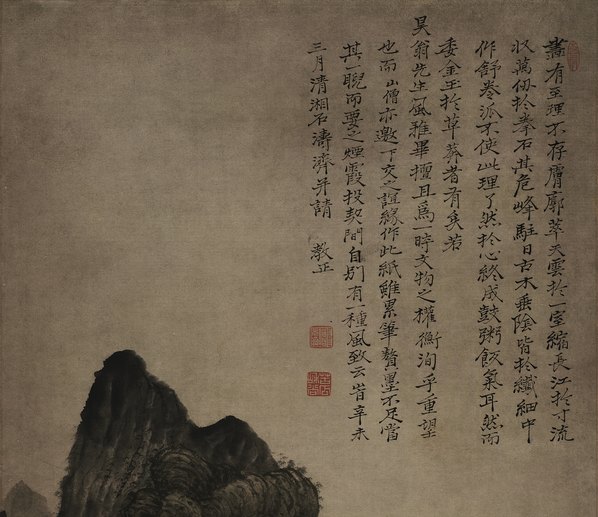 畫有至理不存膚廓萃天雲於一室縮長江於寸流
收萬仞於拳石其危峰駐日古木垂陰皆於纖細中
作舒卷派不使此理了然於心終成鼓粥飯氣耳然而
委金玉於草莽者有矣若
昊翁先生風雅畢擅且為一時文物之權衡洵乎重望
也而山僧亦邀下交之誼緣作此紙雖累筆贅墨不足當
其一睨而要之煙霞投契間自別有一種風致云峕辛未
三月清湘石濤濟并請 教正